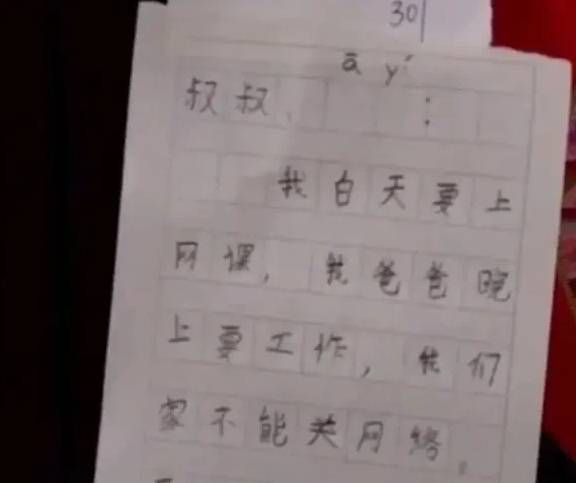 30
ā yí
叔叔、 :
我白天要上
网课,我爸爸晚
上要工作,我们
家不能关网络。